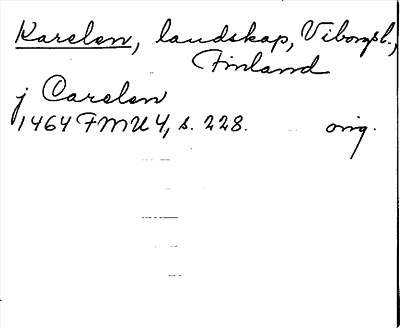 Karelen, landskap, Viborgsl.,
Finland
j Carelen
1464 FMU 4, s. 228. orig.